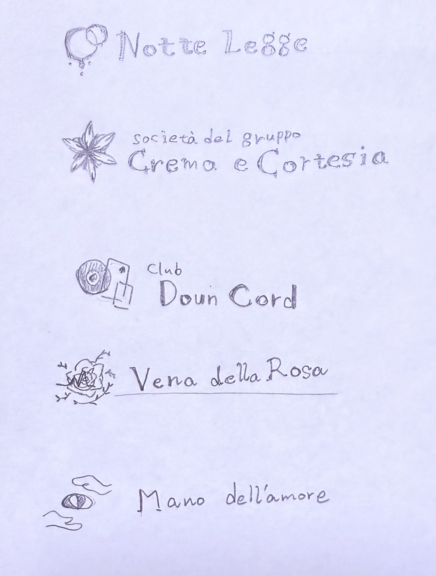 Notte Legge
società del gruppo
Crema e Cortesia
Club
Doun Cord
Vena della Rosa
Mano dell'amore